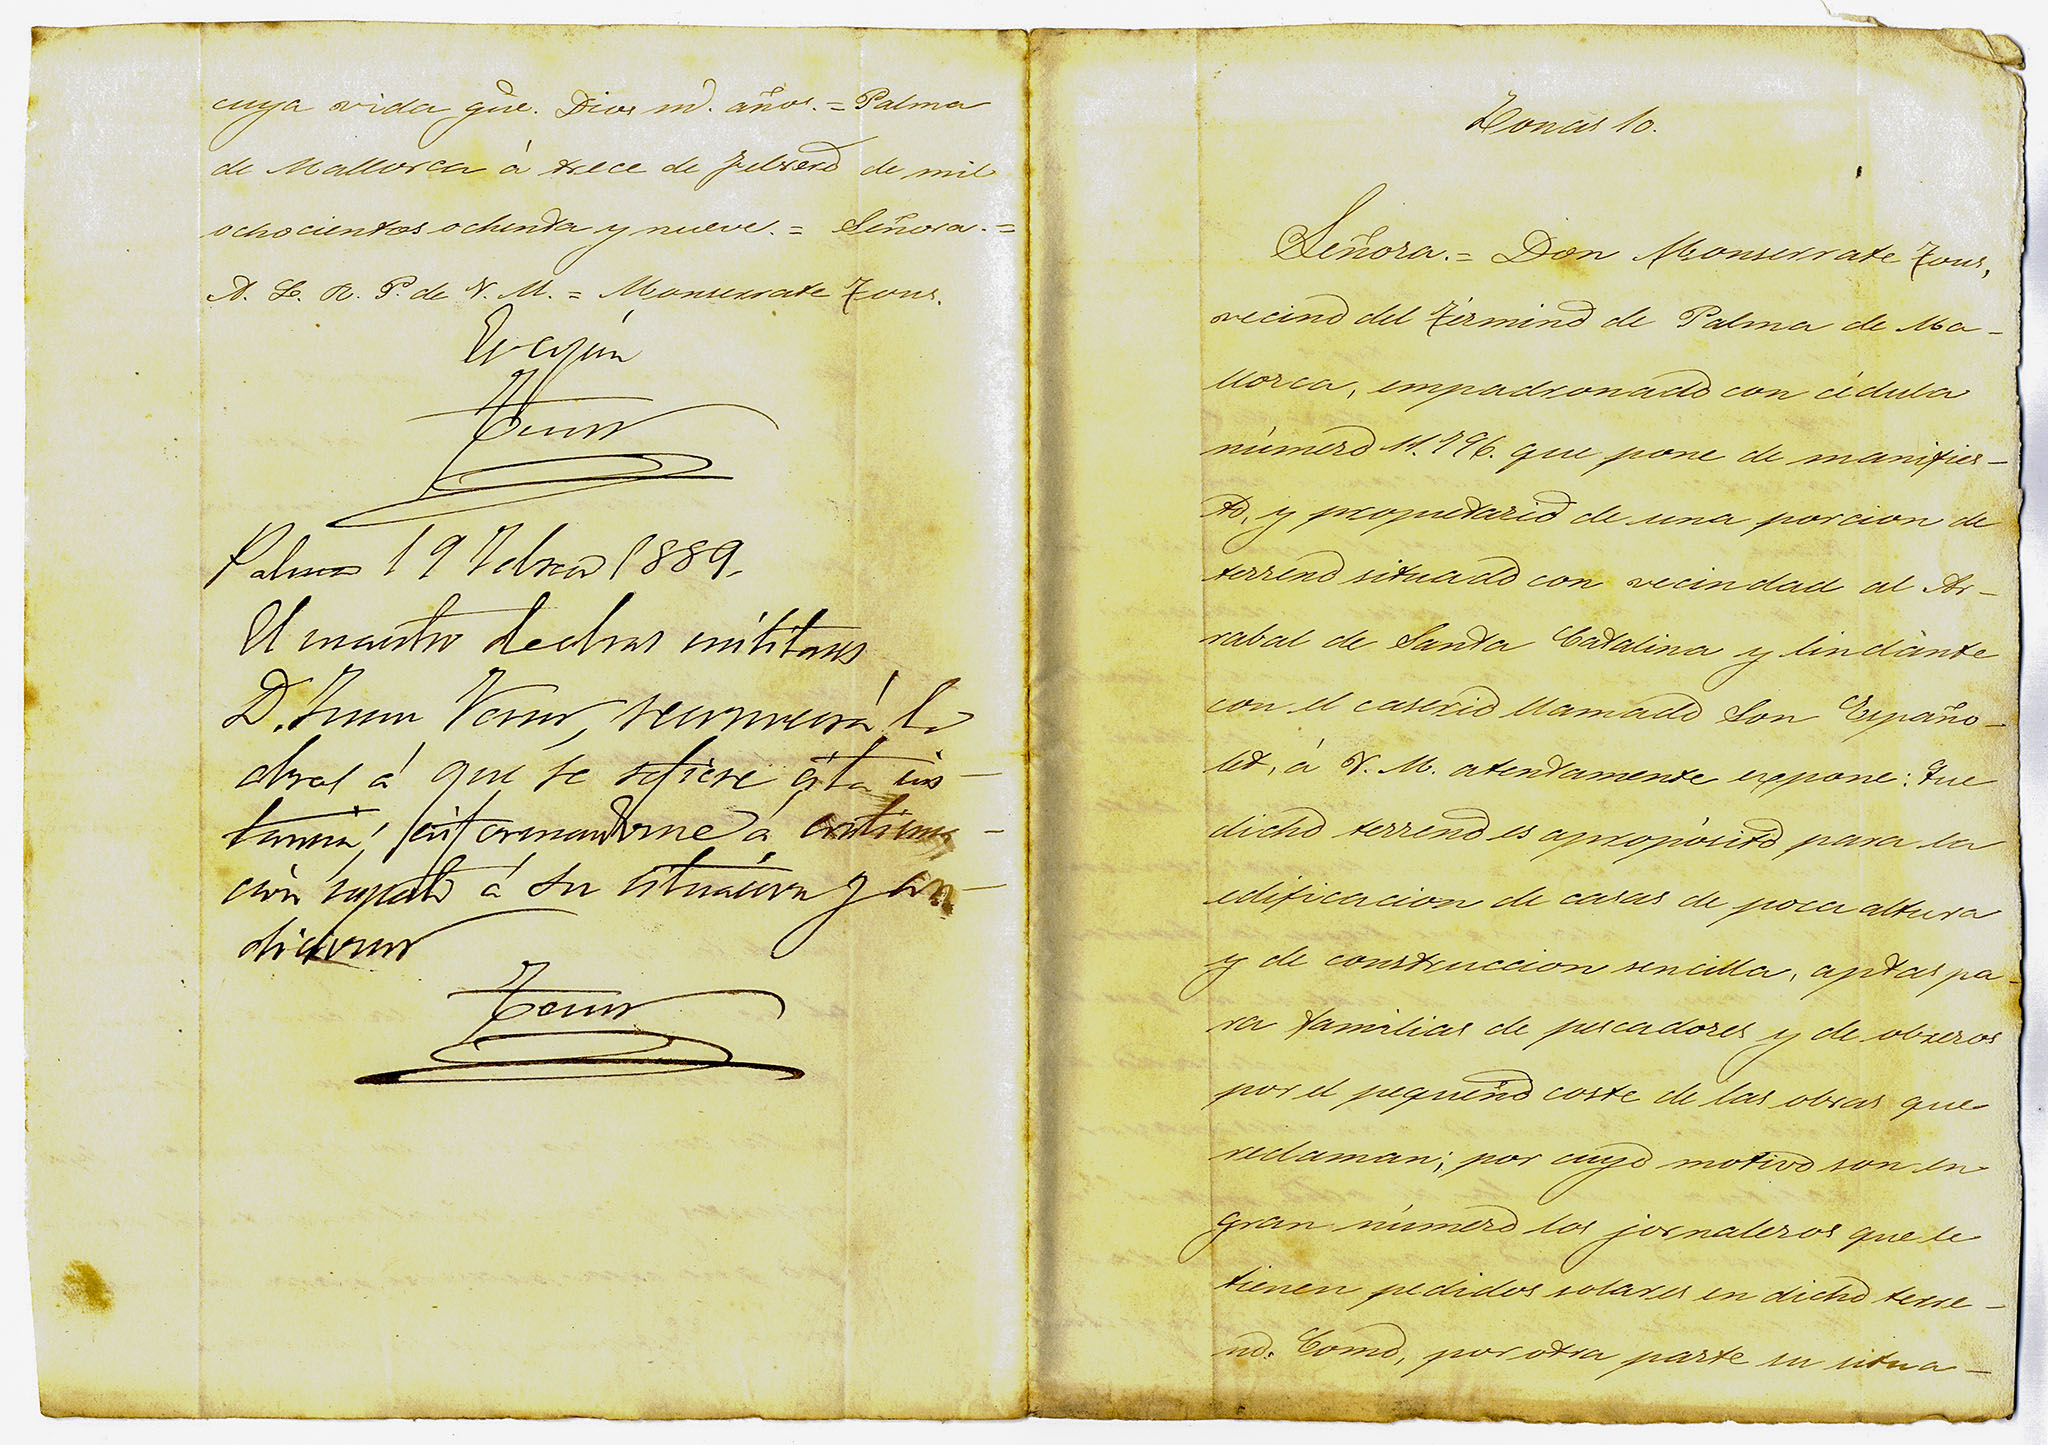 cuya vida güe. Dios m.ˢ años. = Palma
de Mallorca á trece de Febrero de mil
ochocientos ochenta y nueve. = Señora. =
A. L. R. P. de V. M. = Monserrate Tous.
Es copia
Palma 19 Febrero 1889.
El maestro de obras militares
D. Juan reconocerá la
obras á que se refiere esta ins-
tancia, informandome á continua-
ción respecto á su situación y con-
diciones
Zonas 10.
Señora. = Don Monserrate Tous,
vecino del término de Palma de Ma-
llorca, empadronado con cédula
número 11.796. que pone de manifies-
to, y propietario de una porcion de
terreno situado con vecindad al Ar-
rabal de Santa Catalina y lindante
con el caserio llamado Son Españo-
let, á V. M. atentamente expone: Que
dicho terreno es apropósito para la
edificacion de casas de poca altura
y de construccion sencilla, aptas pa-
ra familias de pescadores y de obreros
por el pequeño coste de las obras que
reclaman; por cuyo motivo son en
gran número los jornaleros que le
tienen pedidos solares en dicho terre-
no. Como, por otra parte su situa-